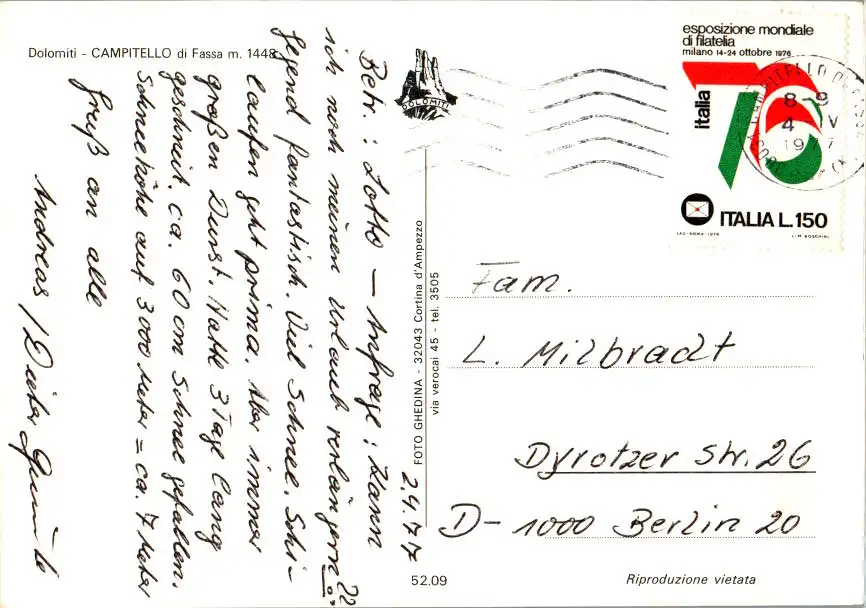 Dolomiti - CAMPITELLO di Fassa m. 1448
2.4.77
Betr.: Lotto - Anfrage: Kann
ich noch meinen Urlaub verlängern??
Gegend fantastisch. Viel Schnee. Schi-
laufen geht prima. Aber immer
großen Durst. Hatte 3 Tage lang
geschneit. ca. 60 cm Schnee gefallen.
Schneehöhe auf 3000 Meter = ca. 7 Meter
Gruß an alle
Andreas / Dieter
DOLOMITI
FOTO GHEDINA - 32043 Cortina d'Ampezzo
via verocai 45 - tel. 3505
esposizione mondiale
di filatelia
milano 14-24 ottobre 1976
italia 76
ITALIA L.150
I.P.S.-ROMA-1976
L.-M. BOSCHINI
CAMPITELLO DI FASSA
8-9
4 IV
1977
Fam.
L. Milbradt
Dyrotzer Str. 26
D-1000 Berlin 20
52.09
Riproduzione vietata